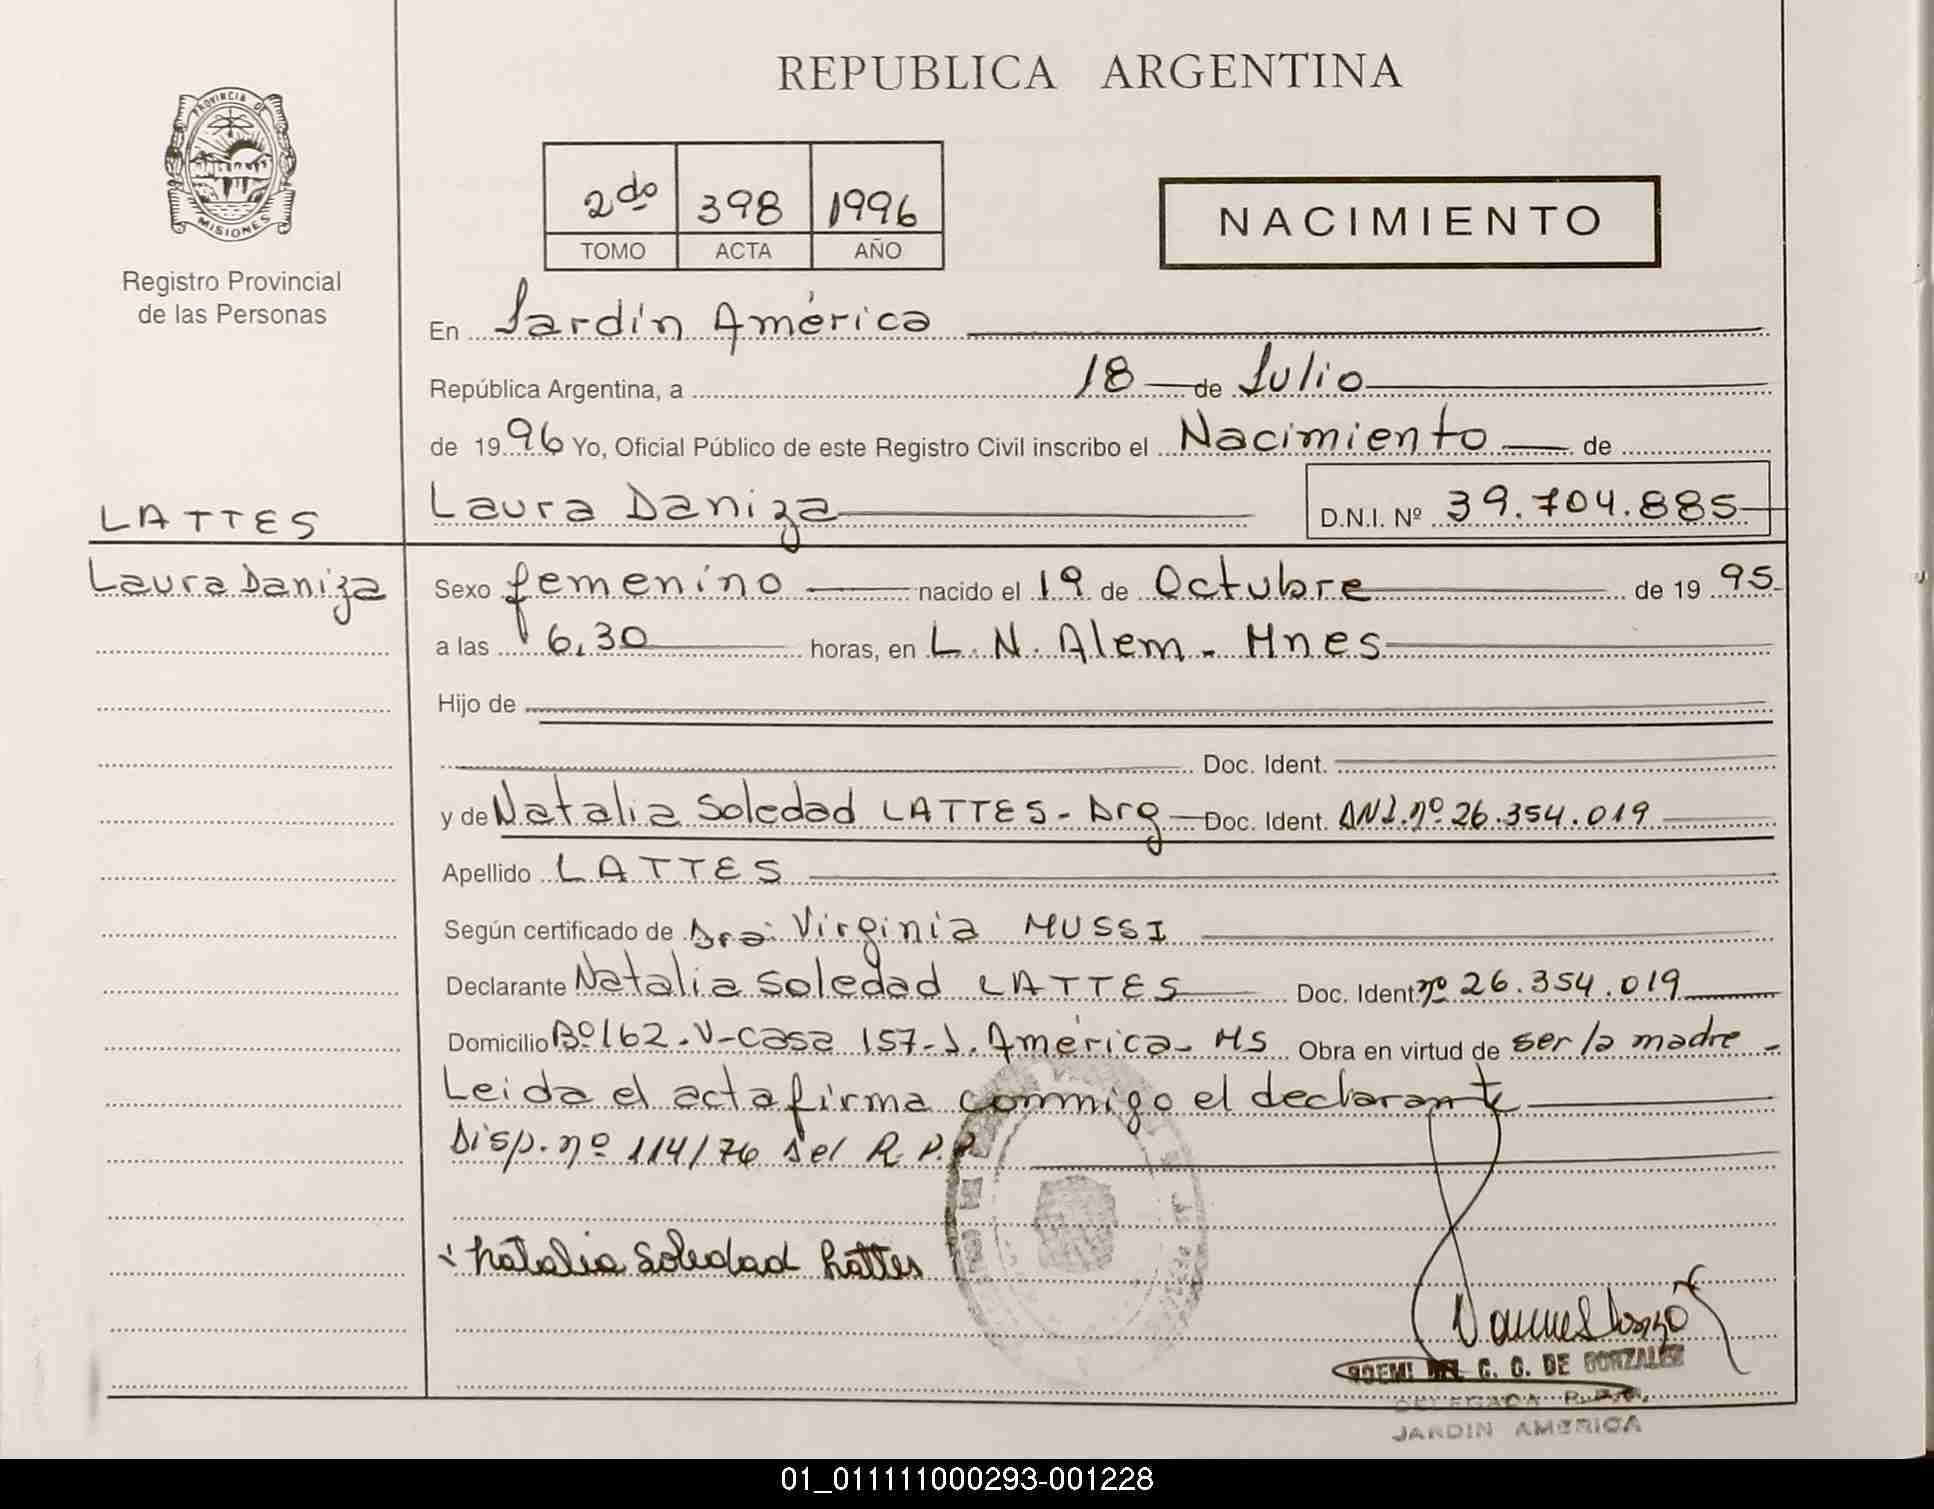 REPUBLICA ARGENTINA
PROVINCIA DE
MISIONES
Registro Provincial
de las Personas
2do 398 1996
TOMO ACTA AÑO
NACIMIENTO
En Jardín América
República Argentina, a 18 de Julio
de 1996 Yo, Oficial Público de este Registro Civil inscribo el Nacimiento de
LATTES
Laura Daniza
Laura Daniza D.N.I. Nº 39.704.885
Sexo femenino nacido el 19 de Octubre de 1995
a las 6,30 horas, en L. N. Alem - Mnes
Hijo de
Doc. Ident.
y de Natalia Soledad LATTES - Arg Doc. Ident. DNI. nº 26.354.019
Apellido LATTES
Según certificado de Dra: Virginia MUSSI
Declarante Natalia Soledad LATTES Doc. Ident nº 26.354.019
Domicilio Bº 162.V-casa 157-J. América - Ms Obra en virtud de ser la madre -
Leida el acta firma conmigo el declarante
Disp. nº 114/76 del R.P.P.
Natalia Soledad Lattes
NOEMI DEL C. G. DE GONZALEZ
DELEGADA R.P.P.
JARDIN AMERICA
01_011111000293-001228